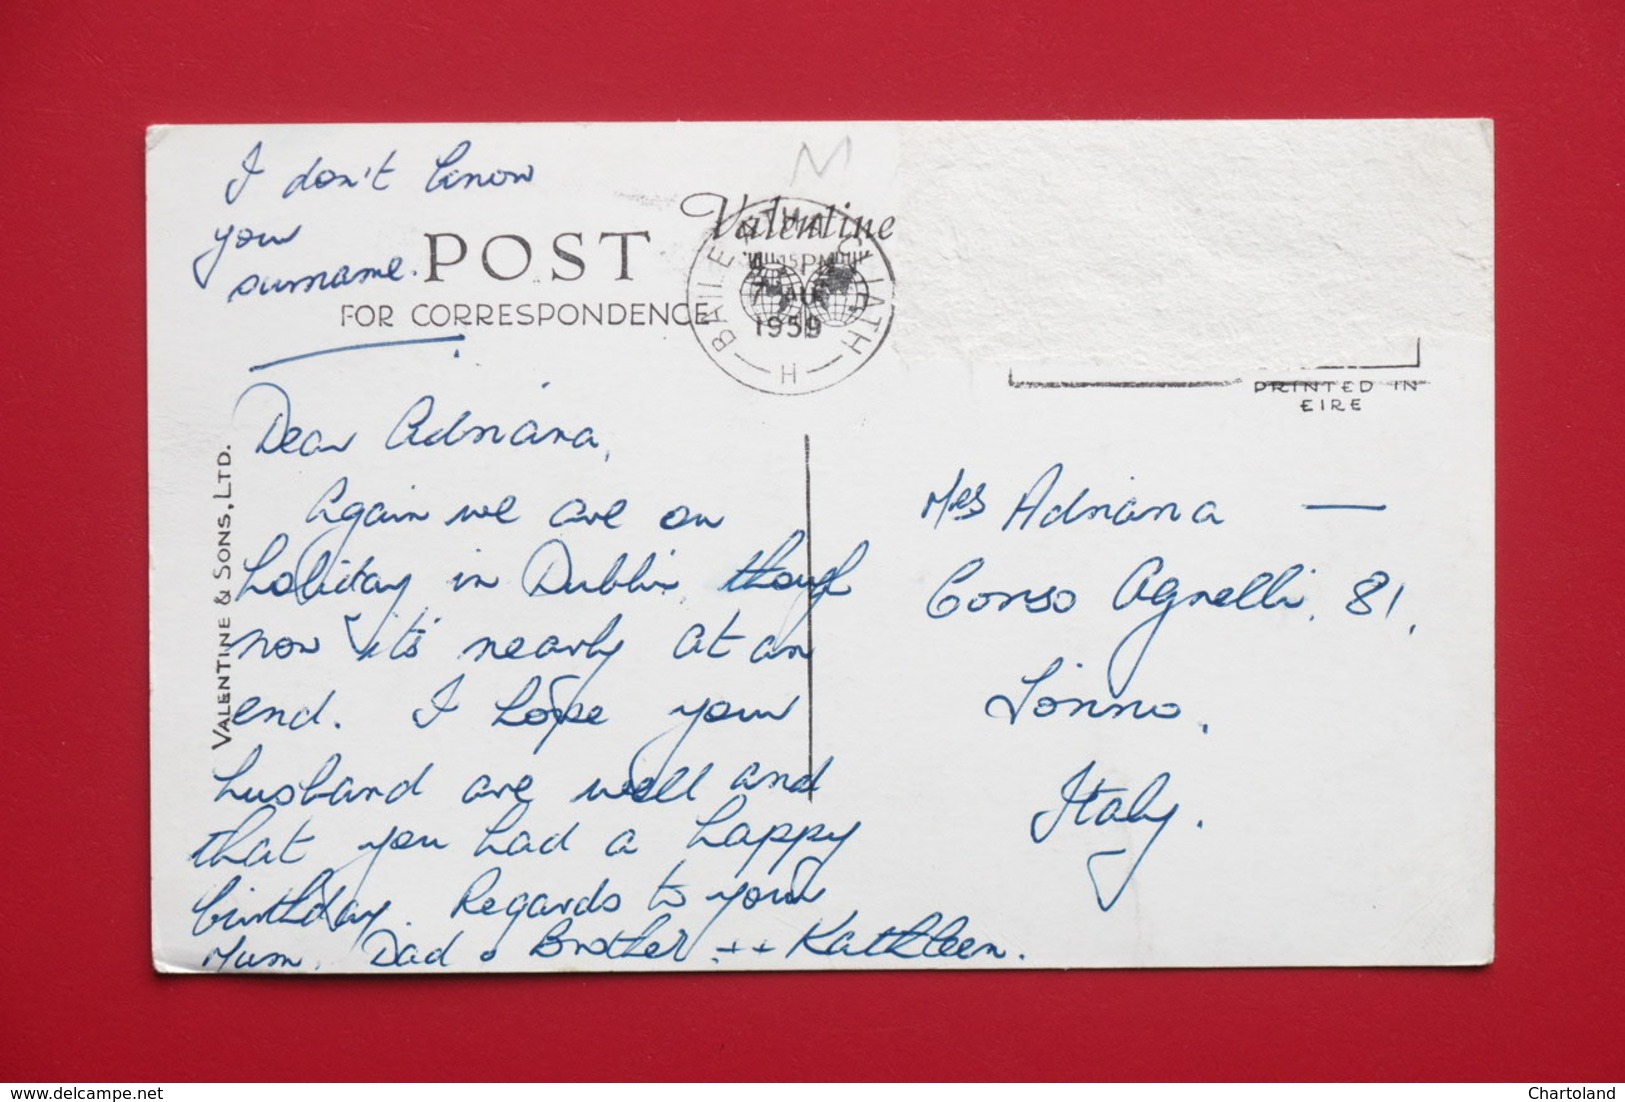 I don't know
your
surname.
POST
FOR CORRESPONDENCE
Valentine
BAILE ÁTHA CLIATH
PM
7 AU
1959
H
M
PRINTED IN
EIRE
VALENTINE & SONS, LTD.
Dear Adriana,
Again we are on
holiday in Dublin, though
now it's nearly at an
end. I hope your
husband are well and
that you had a happy
birthday. Regards to your
Mum, Dad & Brother ++ Kathleen.
Mrs Adriana —
Corso Agnelli, 81,
Torino,
Italy.
delcampe.net
Chartoland